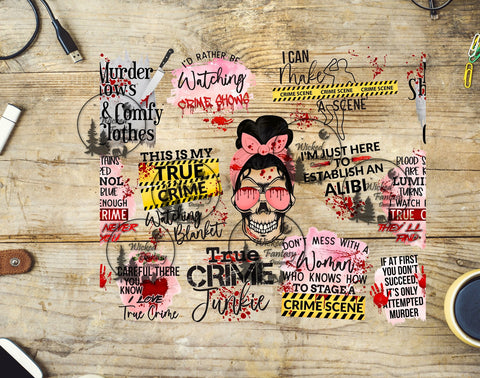 Murder
Shows
& Comfy
Clothes
I'D RATHER BE
Watching
CRIME SHOWS
I CAN
Make
CRIME SCENE CRIME SCENE CRIME SCENE
A SCENE
THIS IS MY
TRUE
CRIME
Watching
Blanket
I'M JUST HERE
TO
ESTABLISH AN
ALIBI
NOL
BLUE
ENOUGH
CRIME
NEVER
BLOOD S
LUMI
TURNS
WATCH
TRUE C
THEY'LL
CAREFUL THERE
YOU
KNOW
I LOVE
True Crime
True
CRIME
Junkie
DON'T MESS WITH A
Woman
WHO KNOWS HOW
TO STAGE A
CRIME SCENE
IF AT FIRST
YOU DON'T
SUCCEED,
IT'S ONLY
ATTEMPTED
MURDER
Wicked
Fantasy